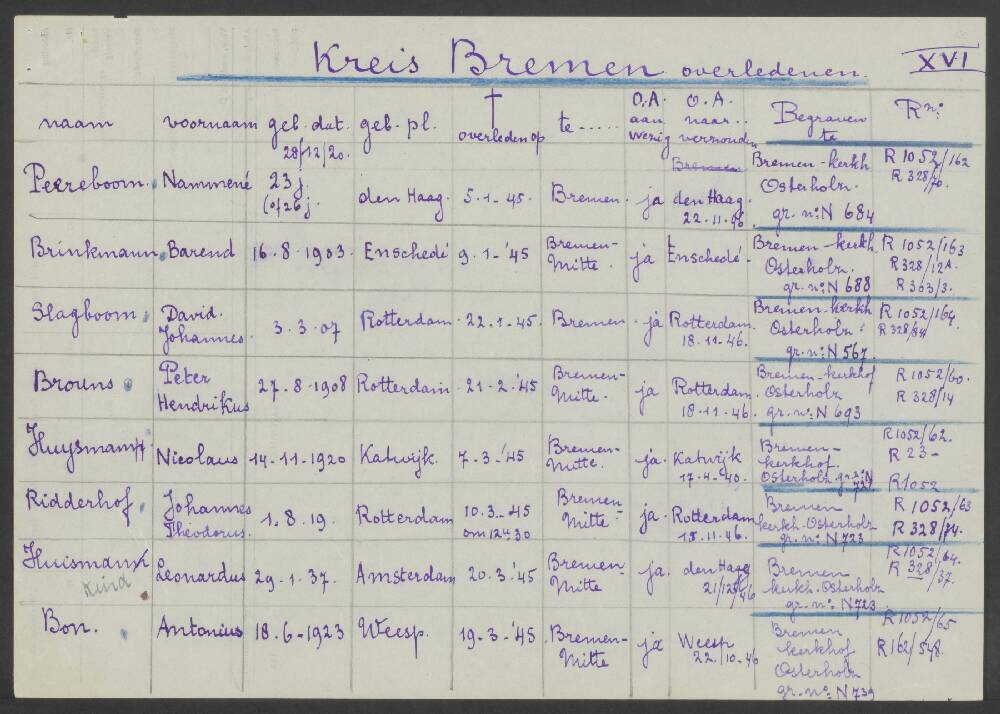 Kreis Bremen overledenen. XVI
naam voornaam geb. dat. geb. pl. † overleden op te ..... O.A. aan wezig O.A. naar.. verzonden Begraven te R nr:
Peereboom. Nammené 28/12/20. 23 j. den Haag. 5.1-45. Bremen. ja Bremen den Haag. 22.11.46 Bremen-kerkh Osterholz. gr. no: N 684 R 1052/162 R 328/70.
Brinkmann. Barend 16.8.1903. Enschedé 9.1-'45 Bremen-Mitte. ja Enschedé. Bremen-kerkh. Osterholz. gr. no: N 688 R 1052/163 R 328/12A. R 363/3.
Slagboom. David. Johannes. 3.3.07 Rotterdam. 22.1-45. Bremen. ja Rotterdam. 18.11-46. Bremen-kerkh Osterholz. gr. no: N 567. R 1052/164. R 328/84
Brouns. Peter Hendrikus 27.8-1908 Rotterdam. 21-2.'45 Bremen-Mitte. ja Rotterdam. 18-11-46. Bremen-kerkhof Osterholz gr. no: N 693 R 1052/60. R 328/14
Huysman Nicolaus 14-11-1920 Katwijk. 7-3-'45 Bremen-Mitte. ja. Katwijk Bremen-kerkhof. Osterholz gr. no: N R 1052/62. R 23- R 1052
Ridderhof. Johannes Theodorus. 1.8.19. Rotterdam 10.3.-45 om Bremen-Mitte ja. Rotterdam Bremen kerkh. Osterholz gr. no: N 723 R 1052/63 R 328/74.
Huisman kind Leonardus 29.1.37. Amsterdam 20.3.'45 Bremen-Mitte ja. den Haag 21/12-46 Bremen kerkh. Osterholz gr. no: N 723. R 1052/64. R 328/37.
Bon. Antonius 18.6-1923 Weesp. 19-3-'45 Bremen-Mitte ja Weesp 22/10-46 Bremen kerkhof Osterholz gr. no: N 739 R 1052/65 R 162/548.